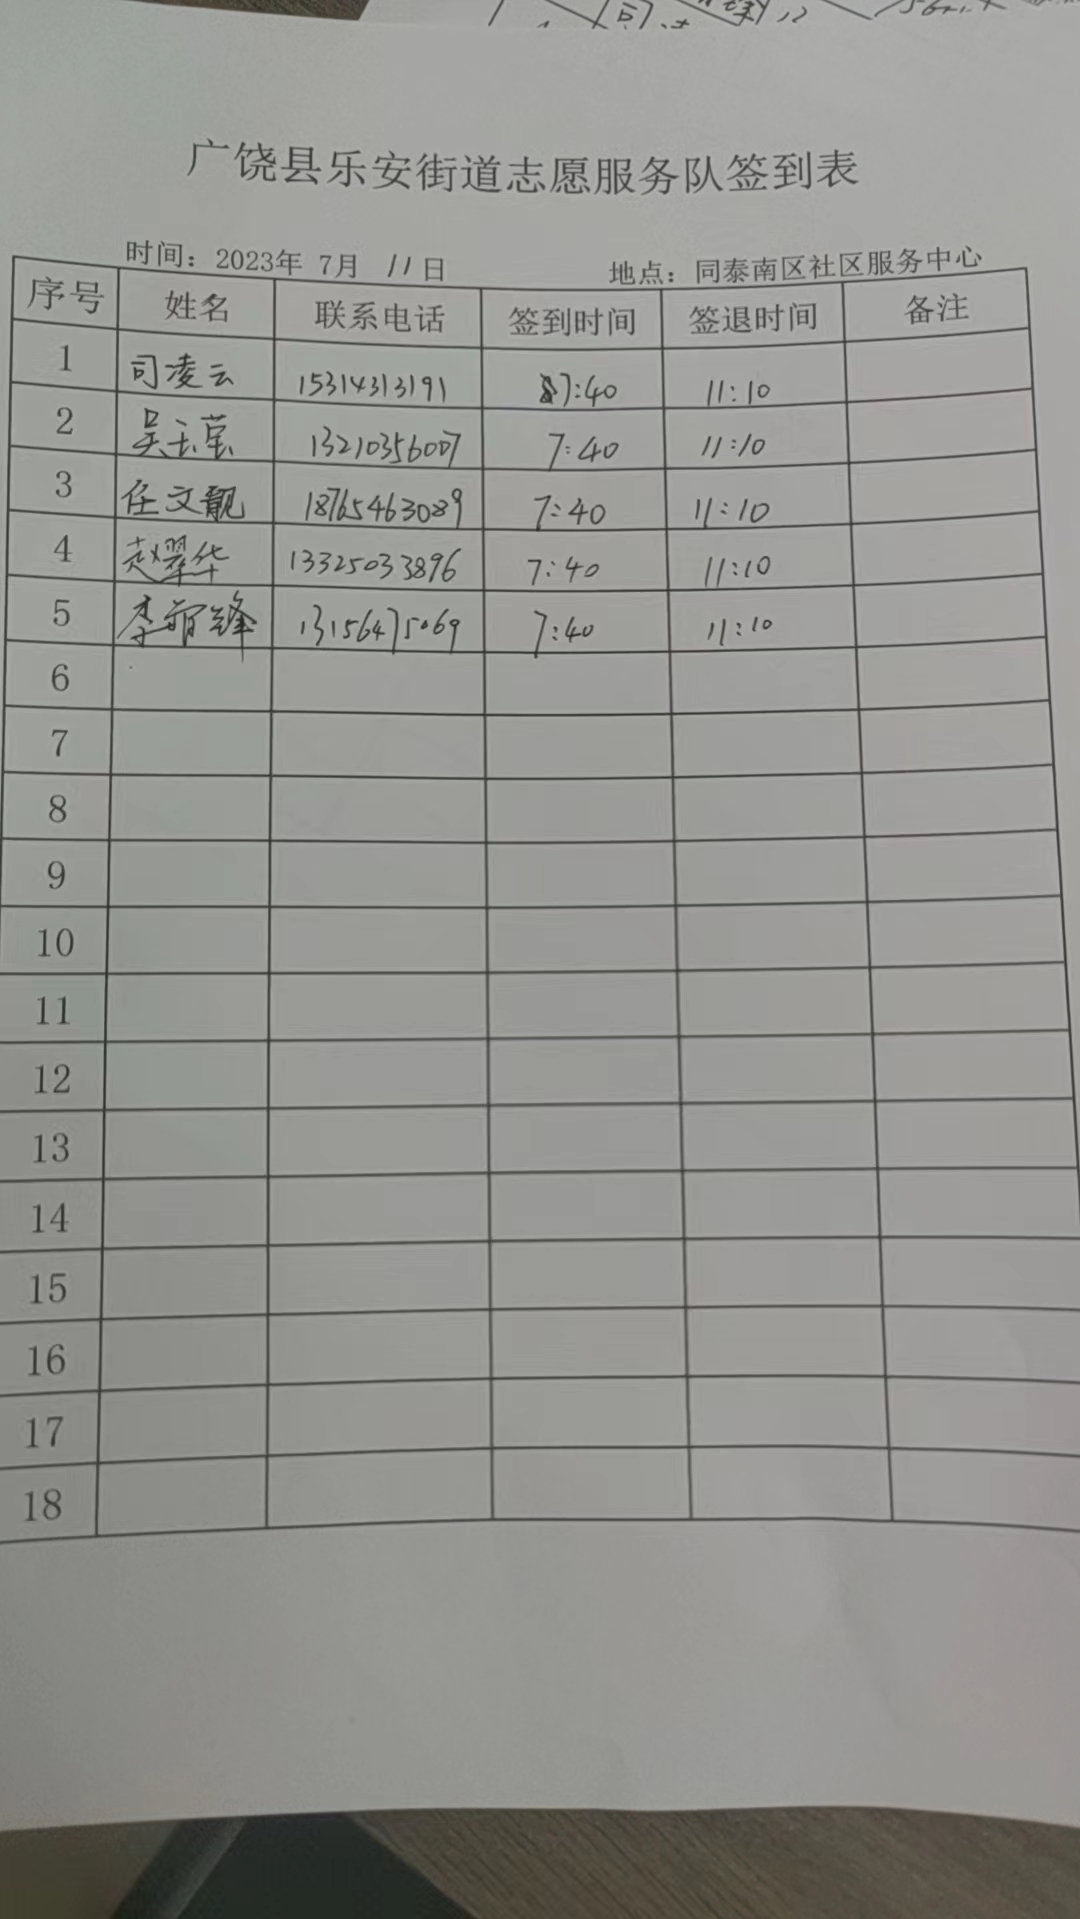 广饶县乐安街道志愿服务队签到表
时间：2023年 7月 11日 地点：同泰南区社区服务中心
序号 姓名 联系电话 签到时间 签退时间 备注
1 司凌云 15314313191 7:40 11:10
2 吴玉莹 13210356007 7:40 11:10
3 任文靓 18765463089 7:40 11:10
4 赵翠华 13325033896 7:40 11:10
5 李 锋 13156475069 7:40 11:10
6
7
8
9
10
11
12
13
14
15
16
17
18